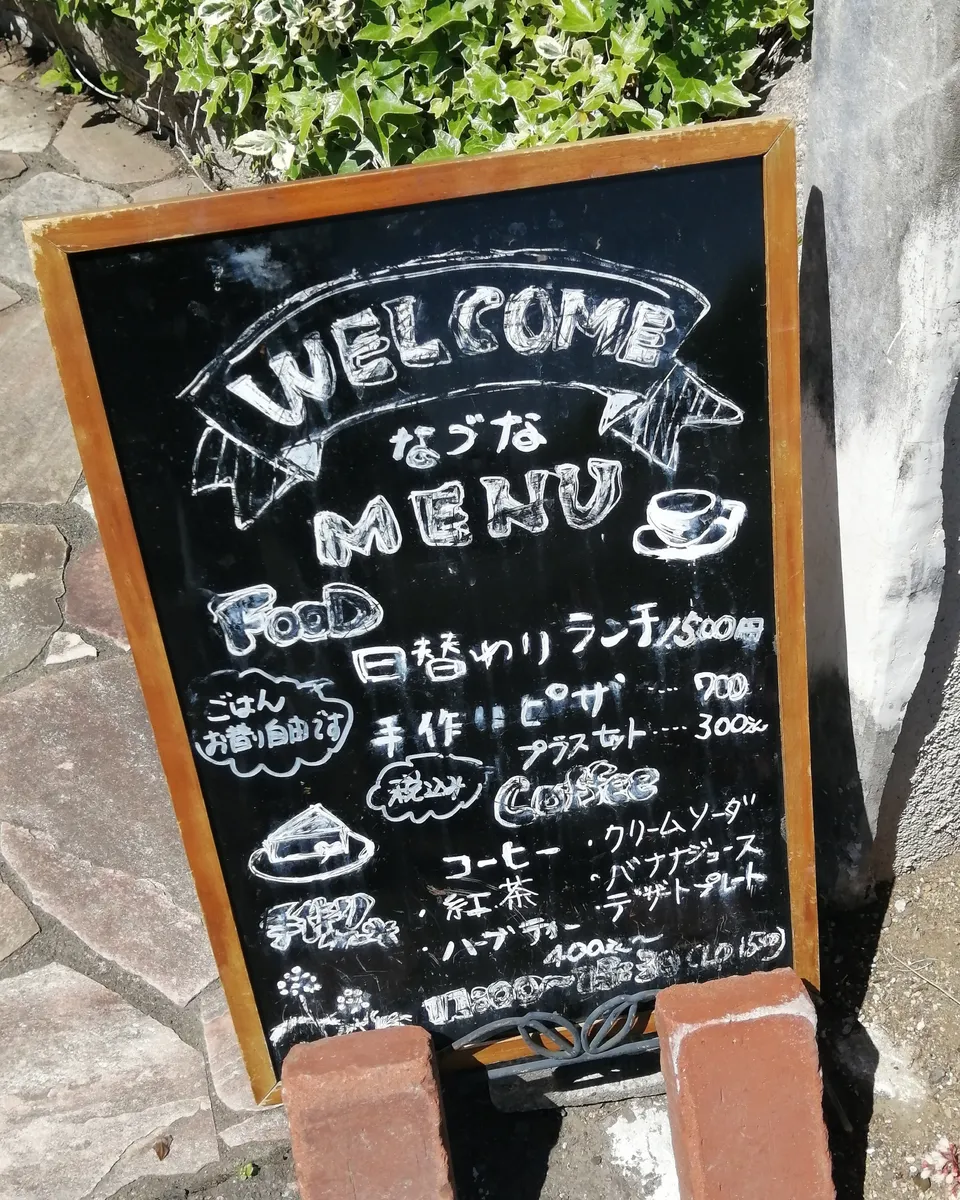 WELCOME
なづな
MENU
FOOD
日替わり ランチ 1500円
ごはん
お替り自由です
手作りピザ ‥‥ 700
プラスセット ‥‥ 300えん
税込み
Coffee
コーヒー
・紅茶
・ハーブティー
・クリームソーダ
・バナナジュース
・デザートプレート
400えん〜
手作り
11:00〜15:30 (LO 15:00)